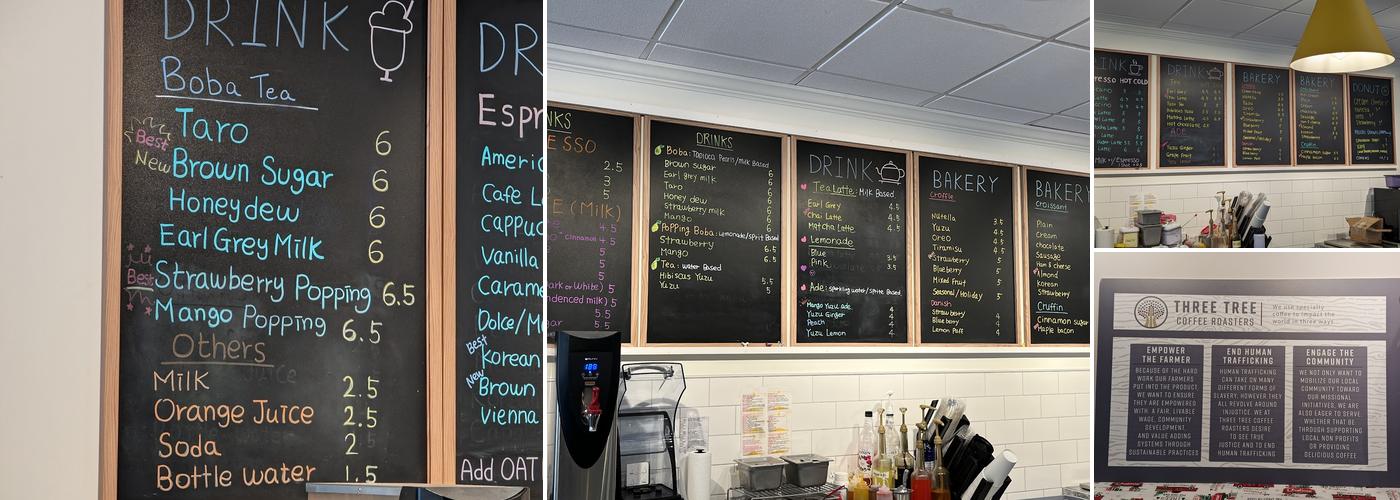 DRINK
Boba Tea
Taro 6
Best
New
Brown Sugar 6
Honeydew 6
Earl Grey Milk 6
Best
Strawberry Popping 6.5
Mango Popping 6.5
Others
Milk 2.5
Orange Juice 2.5
Soda 2
Bottle water 1.5
DR
Espr
Americ
Cafe L
Cappuc
Vanilla
Carame
Dolce/M
Best
Korean
New
Brown
Vienna
Add OAT
NKS
ESSO
2.5
3
5
E (Milk)
cinnamon 4.5
5
5
5
ark or white) 5
ndenced milk) 5
5.5
DRINKS
Boba: Tapioca Pearls/Milk Based
Brown sugar 6
Earl grey milk 6
Taro 6
Honey dew 6
Strawberry milk 6
Mango 6
Popping Boba: Lemonade/Sprit Based
Strawberry 6.5
Mango 6.5
Tea: Water Based
Hibiscus Yuzu 5.5
Yuzu 5
DRINK
Tea Latte: Milk Based
Earl Grey 4.5
Chai Latte 4.5
Matcha Latte 4.5
Lemonade
Blue 3.5
Pink 3.5
Ade: sparkling water/sprite Based
Mango Yuzu ade 4
Yuzu Ginger 4
Peach 4
Yuzu Lemon 4
BAKERY
Croffle
Nutella 3.5
Yuzu 5
Oreo 5
Tiramisu 5
Strawberry 5
Blueberry 5
Mixed Fruit 5
Seasonal/Holiday 5
Danish
Strawberry 4
Blueberry 4
Lemon Poff 4
BAKERY
Croissant
Plain
Cream
chocolate
Sausage
Ham & cheese
Almond
Korean
Strawberry
Cruffin
Cinnamon sugar
Maple bacon
INK
RESSO HOT COLD
DRINK
Earl Grey
Chai Latte
Matcha Latte
Hot chocolate
ADE
Yuzu Ginger
Grape Fruit
BAKERY
BAKERY
DONUT
THREE TREE
COFFEE ROASTERS
We use specialty
coffee to impact the
world in three ways.
EMPOWER
THE FARMER
BECAUSE OF THE HARD
WORK OUR FARMERS
PUT INTO THE PRODUCT,
WE WANT TO ENSURE
THEY ARE EMPOWERED
WITH: A FAIR, LIVABLE
WAGE, COMMUNITY
DEVELOPMENT,
AND VALUE ADDING
SYSTEMS THROUGH
SUSTAINABLE PRACTICES
END HUMAN
TRAFFICKING
HUMAN TRAFFICKING
CAN TAKE ON MANY
DIFFERENT FORMS OF
SLAVERY, HOWEVER THEY
ALL REVOLVE AROUND
INJUSTICE. WE AT
THREE TREE COFFEE
ROASTERS DESIRE
TO SEE TRUE
JUSTICE AND TO END
HUMAN TRAFFICKING
ENGAGE THE
COMMUNITY
WE NOT ONLY WANT TO
MOBILIZE OUR LOCAL
COMMUNITY TOWARD
OUR MISSIONAL
INITIATIVES, WE ARE
ALSO EAGER TO SERVE.
WHETHER THAT BE
THROUGH SUPPORTING
LOCAL NON PROFITS
OR PROVIDING
DELICIOUS COFFEE